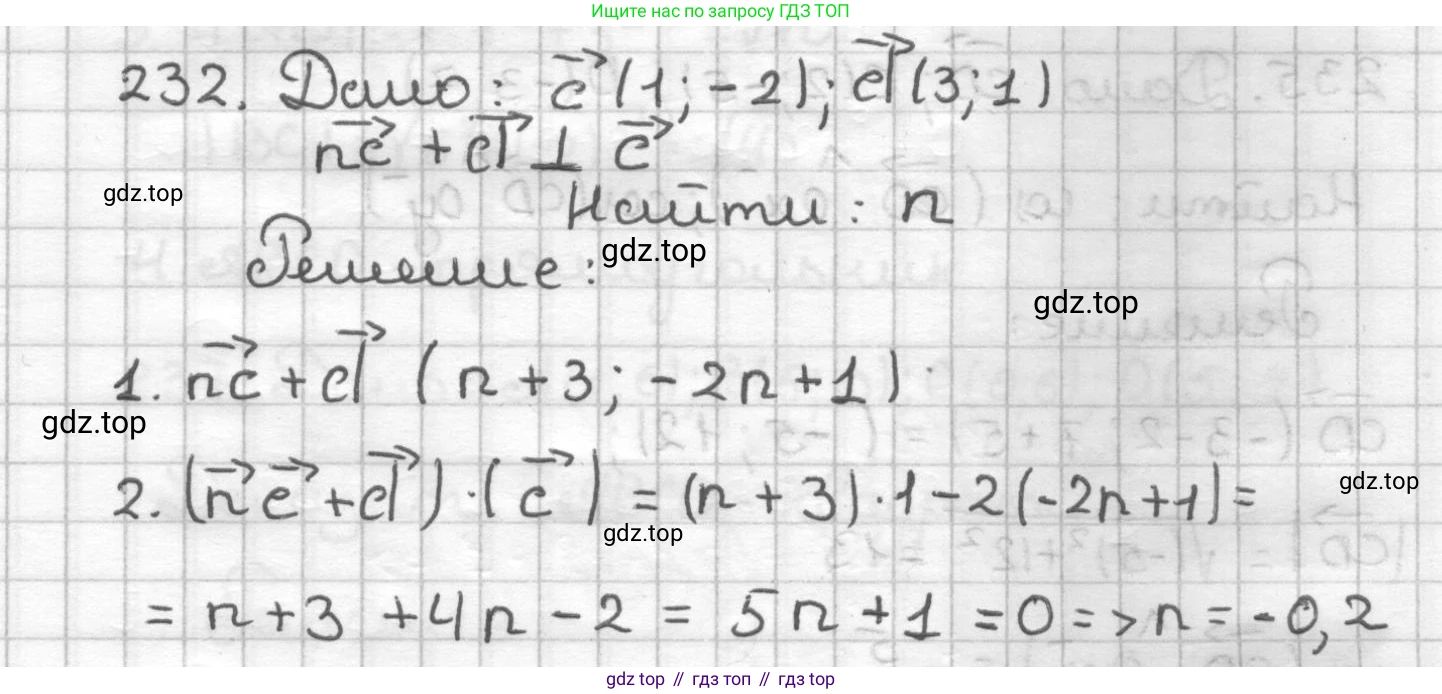 Ищите нас по запросу ГДЗ ТОП
232. Дано: c⃗ (1; -2); d⃗ (3; 1)
nc⃗ + d⃗ ⊥ c⃗
gdz.top
Найти: n
Решение:
gdz.top
gdz.top
1. nc⃗ + d⃗ (n + 3; -2n + 1)
gdz.top
2. (n⃗ c⃗ + d⃗) · (c⃗) = (n + 3) · 1 - 2(-2n + 1) =
gdz.top
gdz.top
= n + 3 + 4n - 2 = 5n + 1 = 0 => n = -0,2
gdz top // гдз топ // гдз top